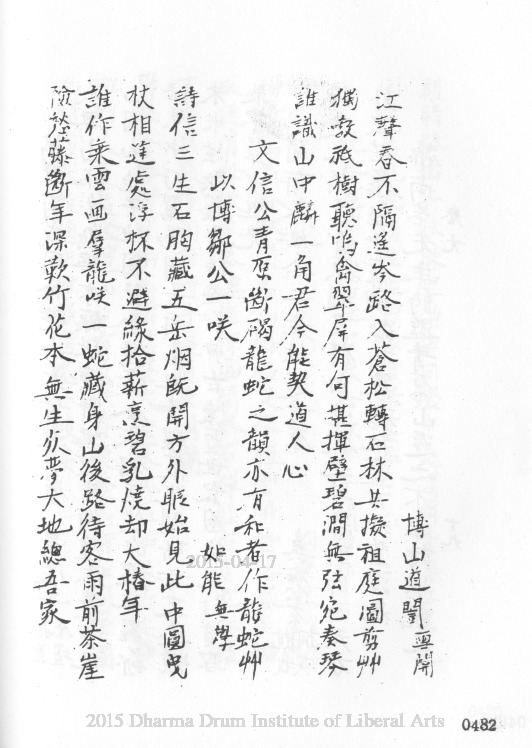 博山道誾 粤開
江聲舂不隔遥岑路入蒼松轉石林共擬祖庭圖剪艸
獨教祇樹聽鳴禽翠屏有句甚揮壁碧澗無弦宛奏琴
誰識山中麟一角君今能契道人心
文信公青原斷碣龍蛇之韻亦有和者作龍蛇艸
以博鄒公一咲
如能 無學
詩信三生石胸藏五岳烟既開方外眼始見此中圓曳
杖相逢處浮杯不避緣拾薪烹碧乳燒却大椿年
誰作乘雲画羣龍咲一蛇藏身山後路待客雨前茶崖
險葢藤斷年深歎竹花本無生死夢大地總吾家
2015-04-17
2015 Dharma Drum Institute of Liberal Arts
0482